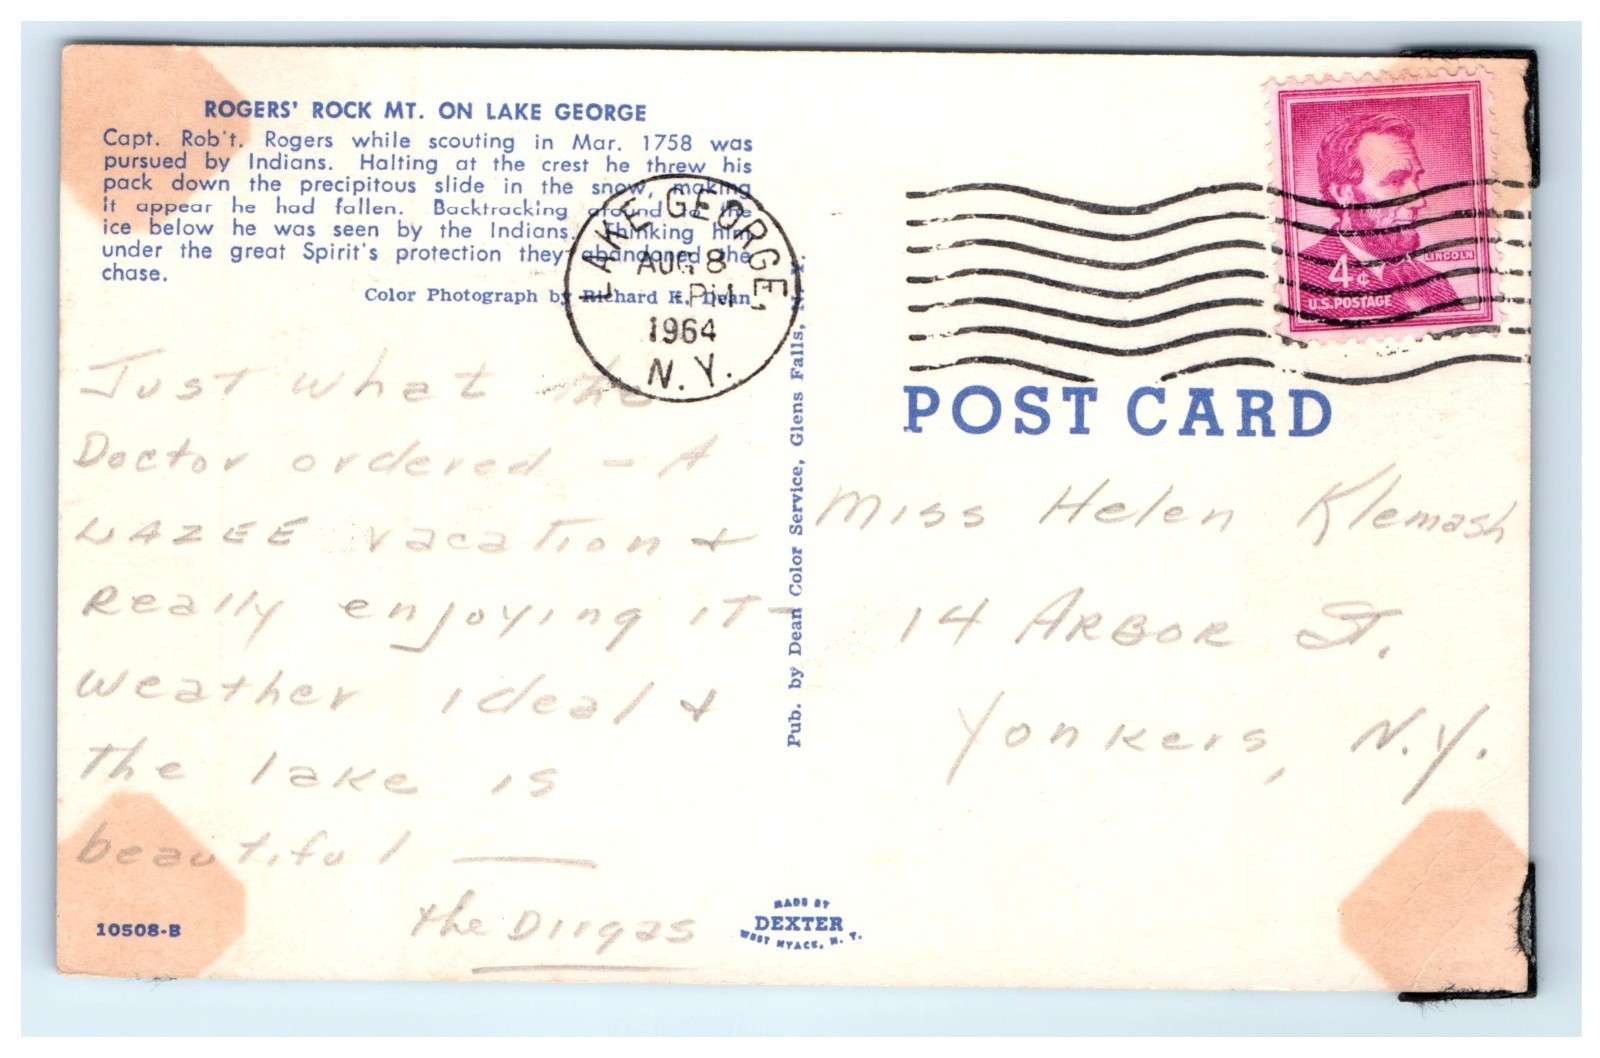 ROGERS' ROCK MT. ON LAKE GEORGE
Capt. Rob't. Rogers while scouting in Mar. 1758 was
pursued by Indians. Halting at the crest he threw his
pack down the precipitous slide in the snow, making
it appear he had fallen. Backtracking around to the
ice below he was seen by the Indians. Thinking him
under the great Spirit's protection they abandoned the
chase.
Color Photograph by Richard K. Dean
LAKE GEORGE,
AUG 8
PM
1964
N.Y.
Just what the
Doctor ordered - A
LAZEE vacation &
Really enjoying it -
weather ideal &
the lake is
beautiful —
the Dirgas
10508-B
Pub. by Dean Color Service, Glens Falls, N. Y.
MADE BY
DEXTER
WEST NYACK, N. Y.
LINCOLN
4¢
U.S. POSTAGE
POST CARD
Miss Helen Klemash
14 ARBOR ST.
Yonkers, N.Y.